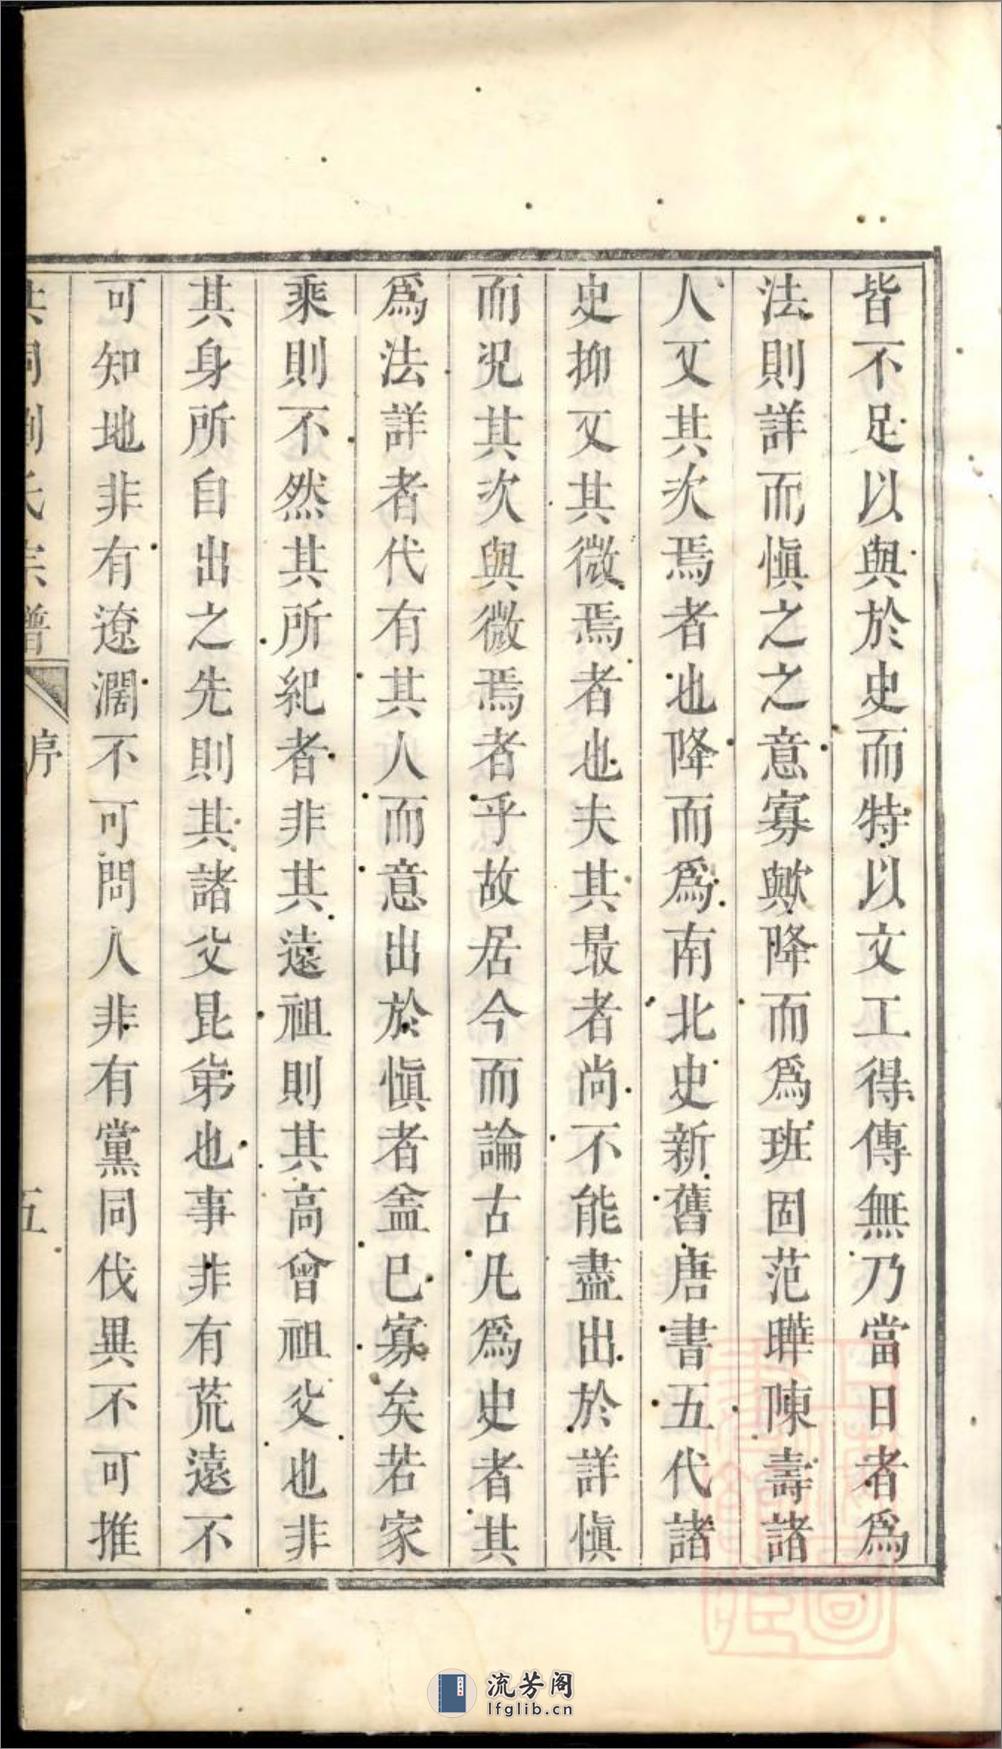 皆不足以與於史而特以文工得傳無乃當日者爲
法則詳而愼之之意寡歟降而爲班固范曄陳壽諸
人又其次焉者也降而爲南北史新舊唐書五代諸
史抑又其微焉者也夫其最者尚不能盡出於詳愼
而況其次與微焉者乎故居今而論古凡爲史者其
爲法詳者代有其人而意出於愼者盒已寡矣若家
乘則不然其所紀者非其遠祖則其高曾祖父也非
其身所自出之先則其諸父昆弟也事非有荒遠不
可知地非有遼濶不可問人非有黨同伐異不可推
氏宗譜
序
五
流芳阁
lfglib.cn